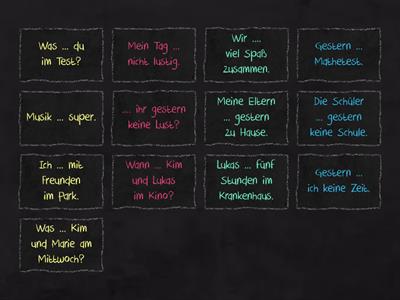 Was ... du
im Test?
Mein Tag ...
nicht lustig.
Wir ....
viel Spaß
zusammen.
Gestern ...
Mathetest.
Musik ... super.
.... ihr gestern
keine Lust?
Meine Eltern
... gestern
zu Hause.
Die Schüler
... gestern
keine Schule.
Ich ... mit
Freunden
im Park.
Wann ... Kim
und Lukas
im Kino?
Lukas ... fünf
Stunden im
Krankenhaus.
Gestern ...
ich keine Zeit.
Was ... Kim
und Marie am
Mittwoch?